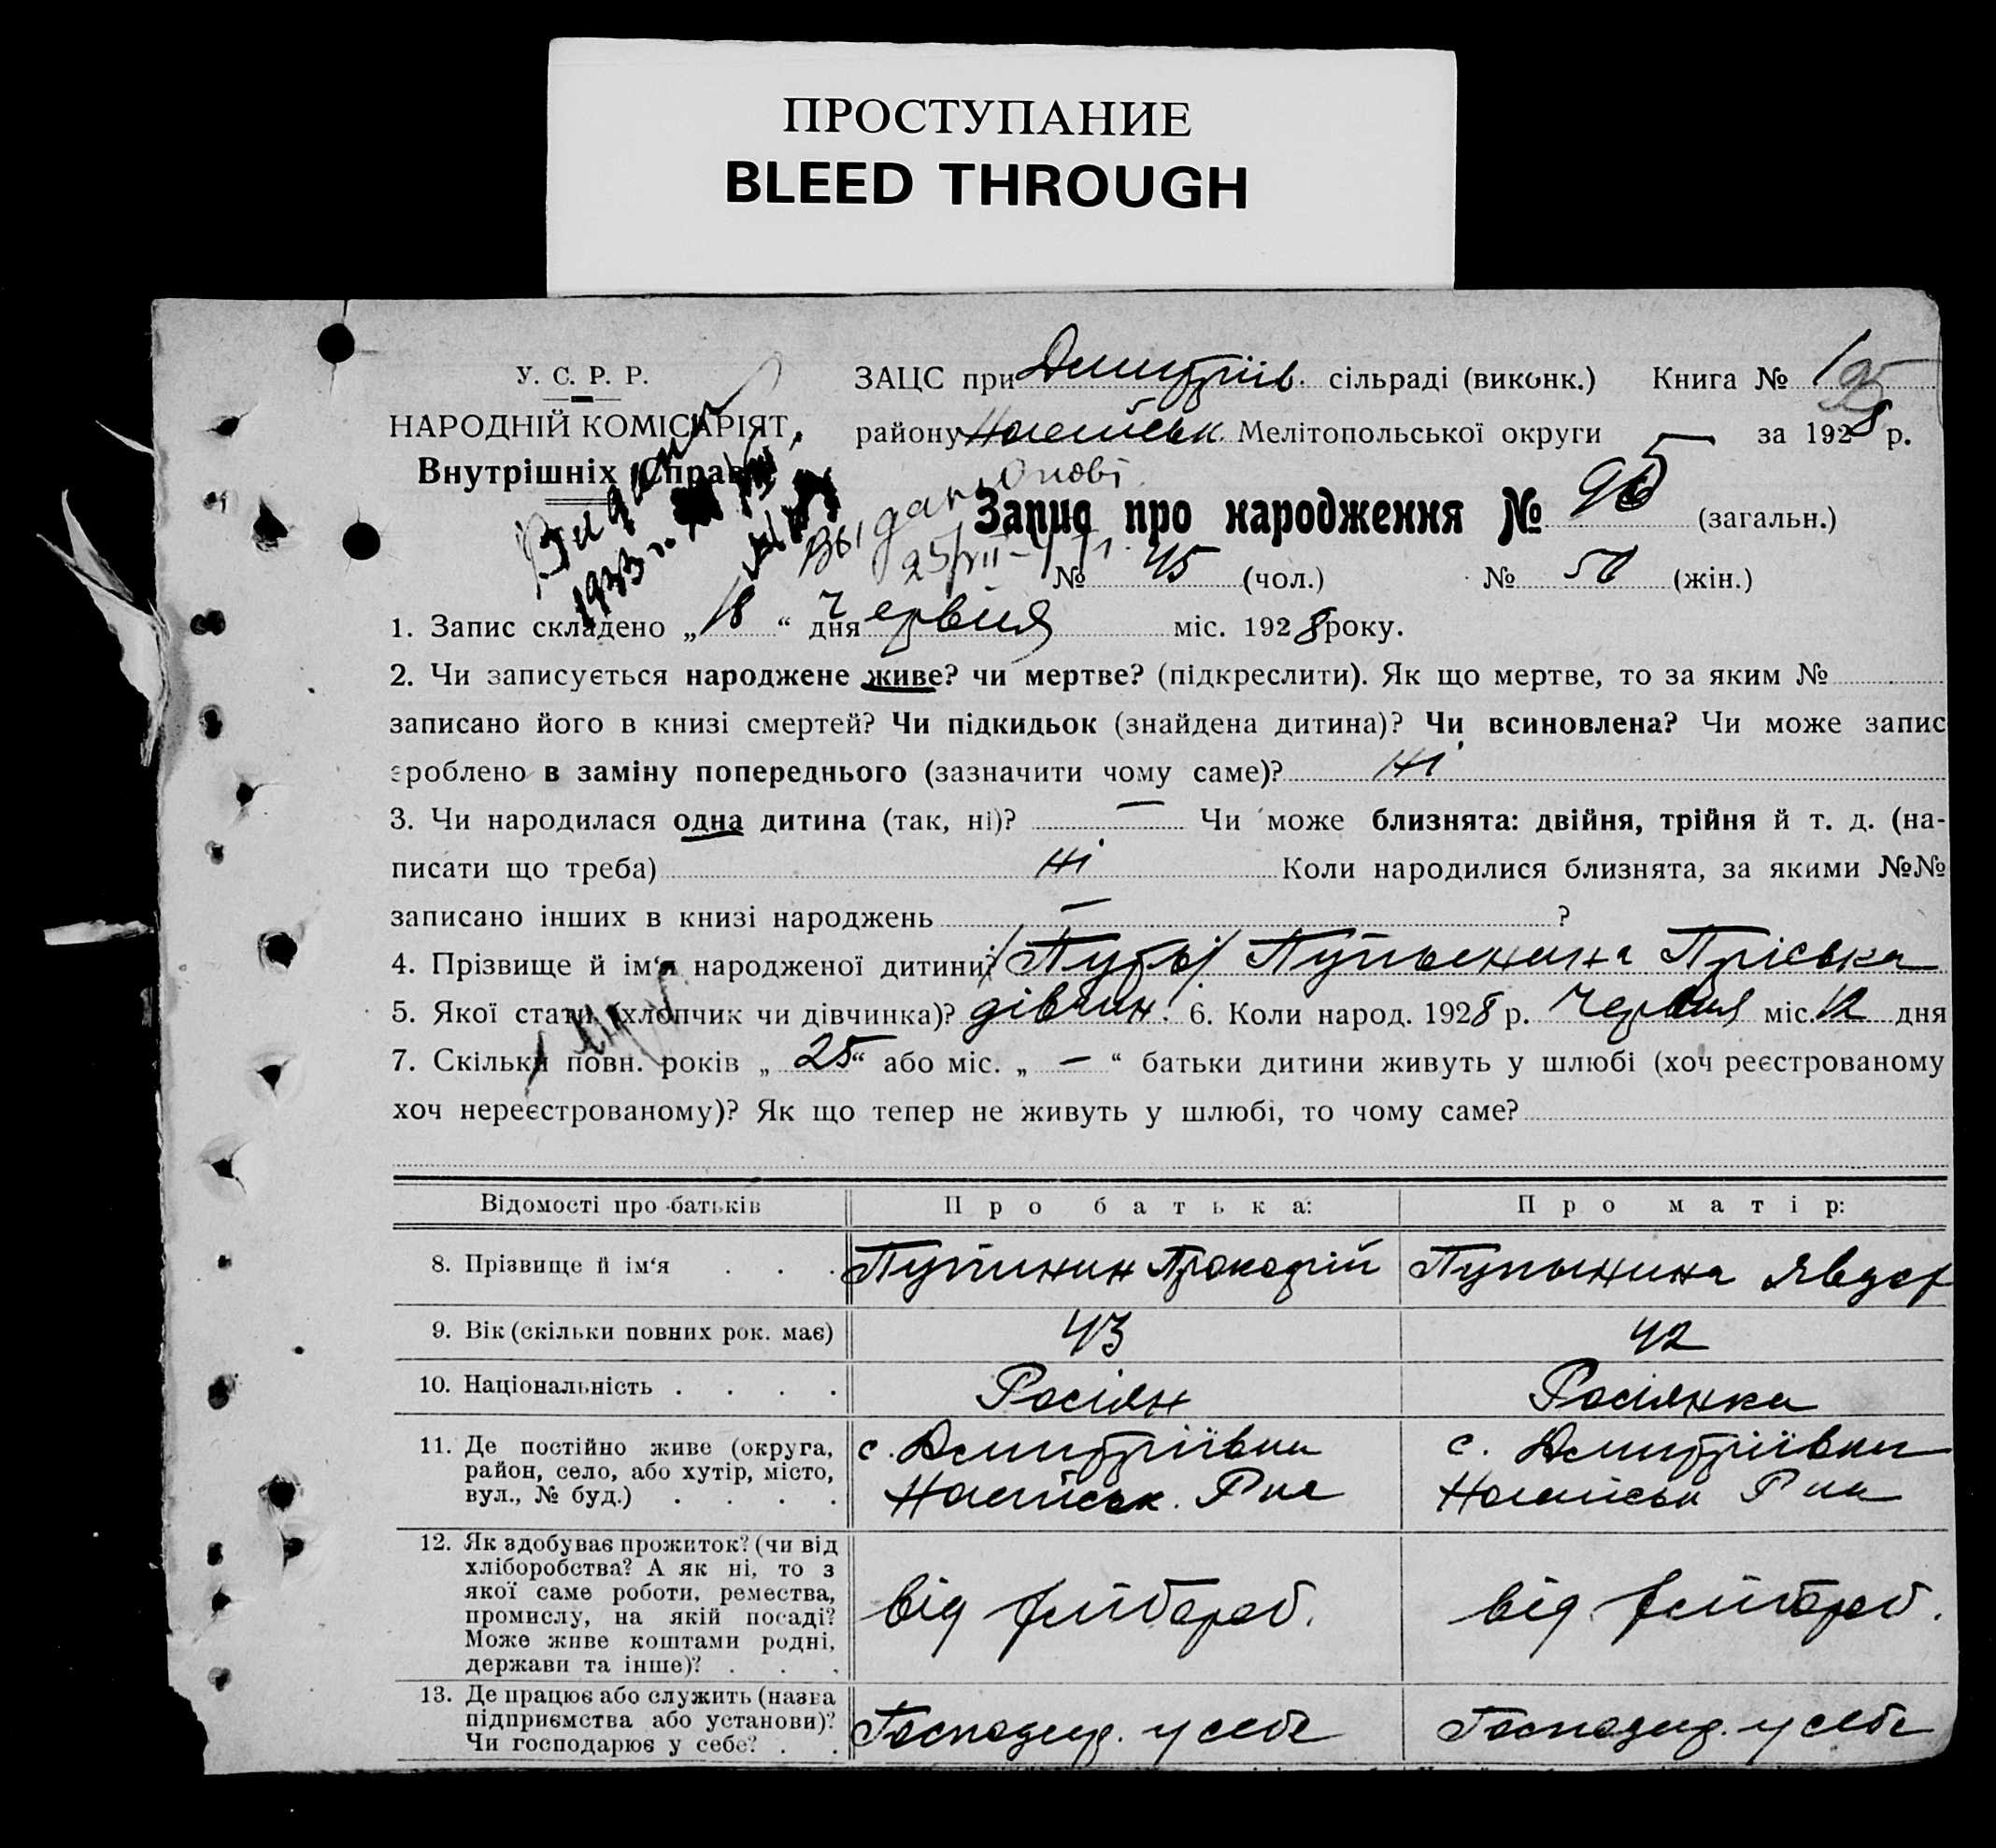 ПРОСТУПАНИЕ
BLEED THROUGH
У. С. Р. Р.
НАРОДНІЙ КОМІСАРІЯТ
Внутрішніх Справ
ЗАЦС при Дмитріїв. сільраді (виконк.) Книга №
району Ногайськ. Мелітопольської округи за 1928 р.
Запис про народження № (загальн.)
№ 45 (чол.) № (жін.)
1. Запис складено „18“ дня Червня міс. 1928 року.
2. Чи записується народжене живе? чи мертве? (підкреслити). Як що мертве, то за яким №
записано його в книзі смертей? Чи підкидьок (знайдена дитина)? Чи всиновлена? Чи може запис
зроблено в заміну попереднього (зазначити чому саме)? Ні
3. Чи народилася одна дитина (так, ні)? — Чи може близнята: двійня, трійня й т. д. (на-
писати що треба) Ні Коли народилися близнята, за якими №№
записано інших в книзі народжень — ?
4. Прізвище й ім‘я народженої дитини? Пупынина Пріська
5. Якої стати (хлопчик чи дівчинка)? дівчин. 6. Коли народ. 1928 р. Червня міс. 12 дня
7. Скільки повн. років „25“ або міс. „—“ батьки дитини живуть у шлюбі (хоч реєстрованому
хоч нереєстрованому)? Як що тепер не живуть у шлюбі, то чому саме?
Відомості про батьків Про батька: Про матір:
8. Прізвище й ім‘я . . . Пупинин Прокофій Пупынина Явдох
9. Вік (скільки повних рок. має) 43 42
10. Національність . . . . Росіян Росіянка
11. Де постійно живе (округа, с. Дмитріївки с. Дмитріївки
район, село, або хутір, місто, Ногайськ. Р на Ногайськ Р на
вул., № буд.) . . . .
12. Як здобуває прожиток? (чи від
хліборобства? А як ні, то з
якої саме роботи, ремества,
промислу, на якій посаді? від хлібороб. від хлібороб.
Може живе коштами родні,
держави та інше)? . . .
13. Де працює або служить (назва
підприємства або установи)? Господар. у себе Господар. у себе
Чи господарює у себе? . .